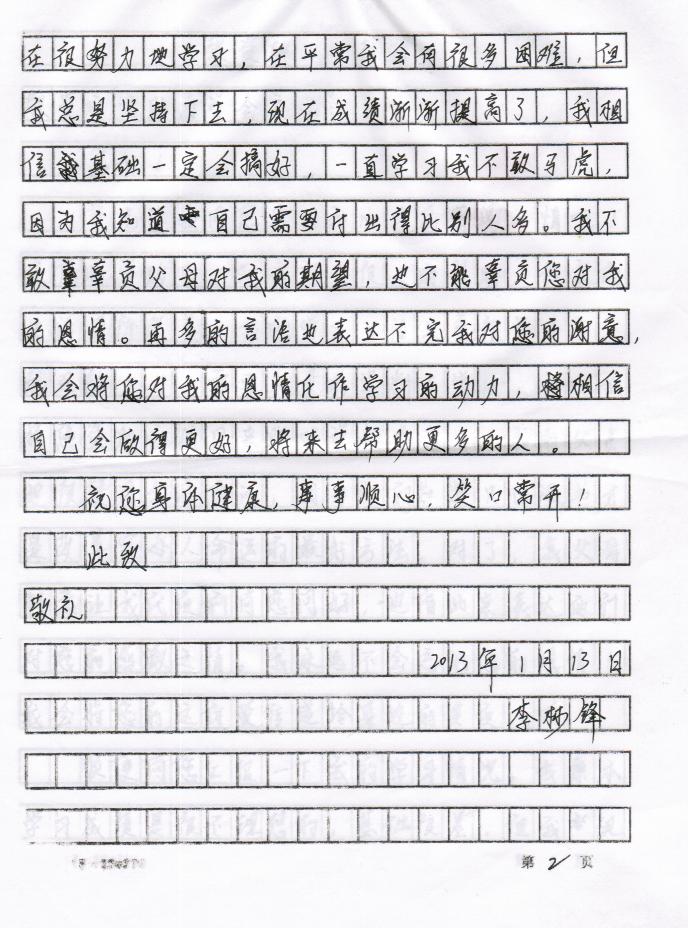 在很努力地学习，在平常我会有很多困难，但
我总是坚持下去，现在成绩渐渐提高了，我相
信我基础一定会搞好，一直学习我不敢马虎，
因为我知道自己需要付出得比别人多。我不
敢辜负父母对我的期望，也不能辜负您对我
的恩情。再多的言语也表达不完我对您的谢意，
我会将您对我的恩情化作学习的动力，相信
自己会做得更好，将来去帮助更多的人。
祝您身体健康，事事顺心，笑口常开！
此致
敬礼
2013年1月13日
李 锋
第 2 页